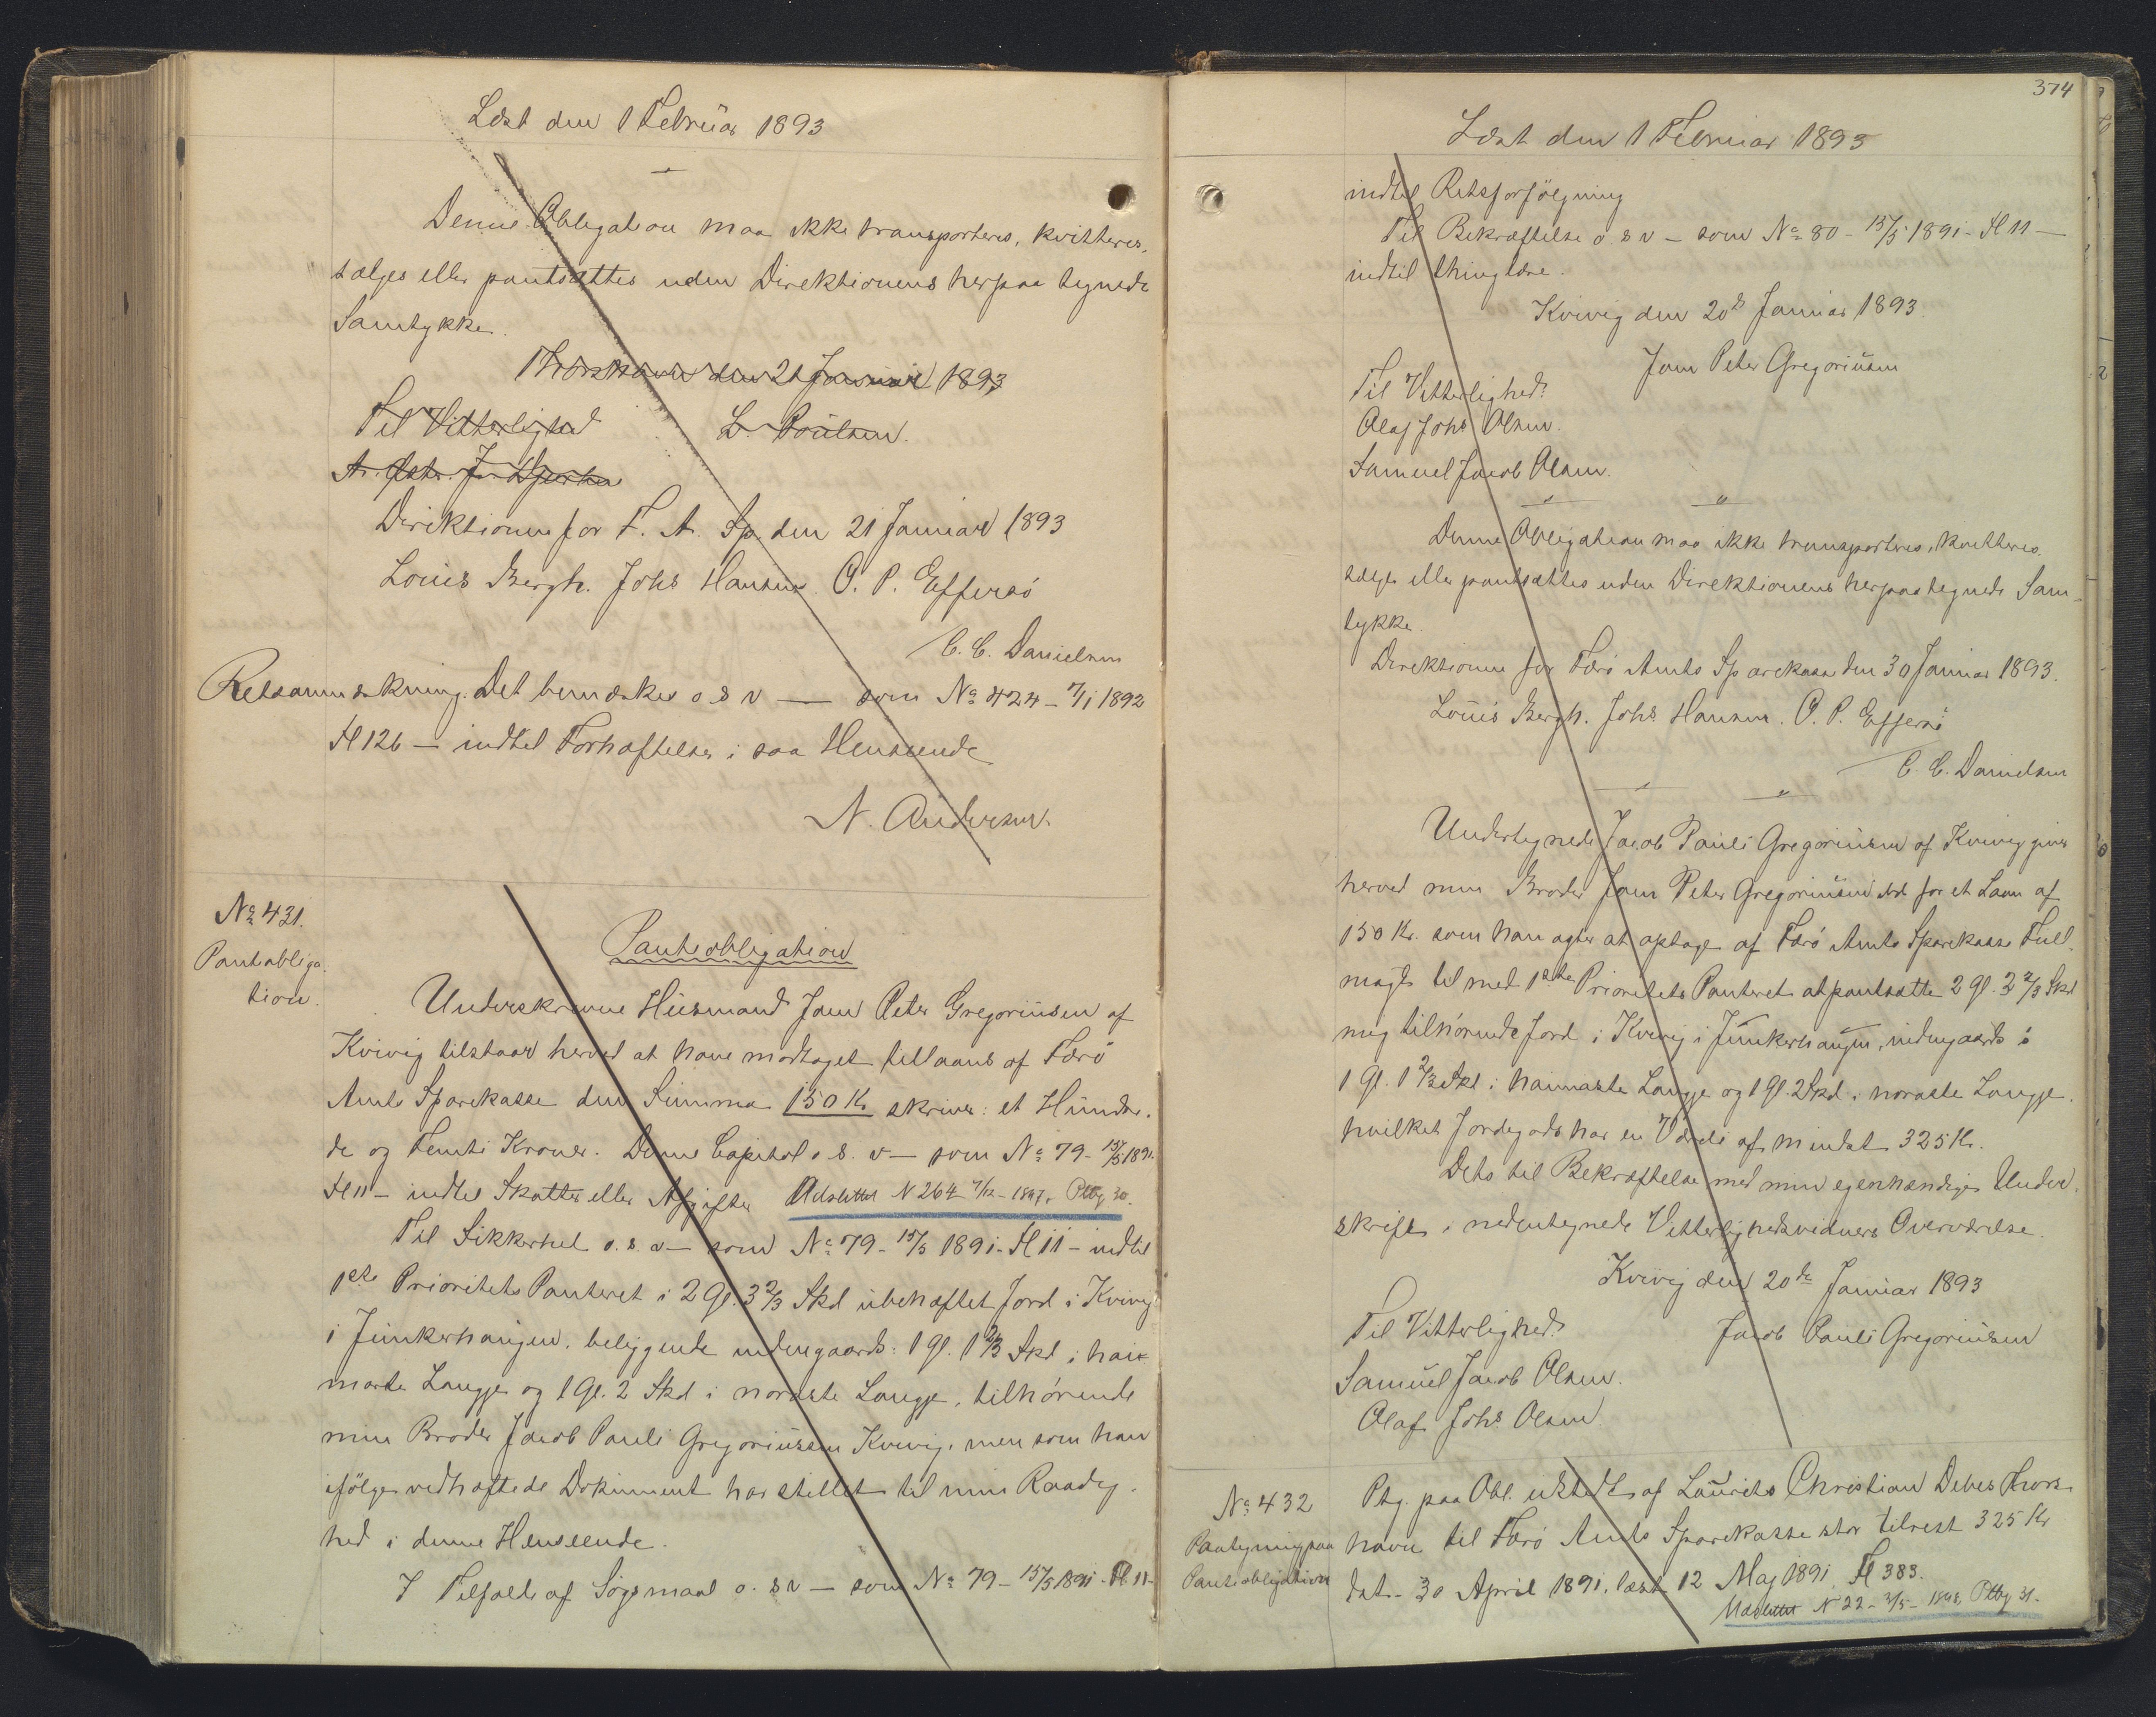 Læst den 1 Februar 1893
Denne Obligation maa ikke transporteres, kvitteres,
sælges eller pantsættes uden Direktionens herpaa tegnede
Samtykke.
Thorshavn den 21 Januar 1893
Til Vitterlighed L. Poulsen.
Direktionen for F. A. Sp. den 21 Januar 1893
Louis Bergh. Johs Hansen. O. P. Effersö
C. C. Danielsen
Retsanmærkning. Det bemærkes o s v — som No 424 - 7/1 1892
Fl 126 — indtil Forhæftelser i saa Henseende
N. Andersen.
No 431.
Pantobliga
tion.
Panteobligation
Underskrevne Huusmand Joen Peter Gregoriussen af
Kvivig tilstaar herved at have modtaget tillaans af Færö
Amts Sparekasse den Summa 150 Kr skriver: et Hundre-
de og Femti Kroner. Denne Capital o. s. v — som No 79 - 15/5 1891.
Fl 11 — indtil Skatter eller Afgifter Udslettet N 264 7/12 - 1897, Ptbg 30.
Til Sikkerhed o. s. v — som No 79 - 15/5 1891 - Fl 11 — indtil
1ste Prioritets Panteret i 2 Gl. 3 2/3 Skd ubehæftet Jord i Kvivig
i Junkerhaugen, beliggende indengaards: 1 Gl. 1 2/3 Skd i hai-
maste Laugje og 1 Gl. 2 Skd i noraste Laugje, tilhørende
min Broder Jacob Pauli Gregoriussen Kvivig, men som han
ifølge vedhæftede Dokument har stillet til min Raadig-
hed i denne Henseende.
I Tilfælde af Søgsmaal o. s v — som No 79 - 15/5 1891 - Fl. 11 -
374
Læst den 1 Februar 1893
indtil Retsforfölgning
Til Bekræftelse o. s v — som No 80 - 15/5 1891 - Fl 11 —
indtil thinglæse.
Kvivig den 20de Januar 1893.
Joen Peter Gregoriusen
Til Vitterlighed:
Olaf Johs Olsen.
Samuel Jacob Olsen.
Denne Obligation maa ikke transporteres, kvitteres.
sælges eller pantsættes uden Direktionens herpaa tegnede Sam-
tykke.
Direktionen for Færö Amts Sparekasse den 30 Januar 1893.
Louis Bergh. Johs. Hansen. O. P. Effersö
C. C. Danielsen
Undertegnede Jacob Pauli Gregoriusen af Kvivig giver
herved min Broder Joen Peter Gregoriusen sted for et Laan af
150 Kr. som han agter at optage af Færö Amts Sparekasse Full-
magt til med 1ste Prioritets Panteret at pantsætte 2 Gl. 3 2/3 Skd
mig tilhørende Jord i Kvivig i Junkerhaugen, indengaards:
1 Gl. 1 2/3 Skd i haimaste Laugje og 1 Gl. 2 Skd. i noraste Laugje.
hvilket Jordegods har en Værdi af mindst 325 Kr.
Dets til Bekræftelse med min egenhændige Under-
skrift i nedentegnede Vitterlighedsvidners Overværelse.
Kvivig den 20de Januar 1893
Til Vitterlighed: Jacob Pauli Gregoriusen
Samuel Jacob Olsen.
Olaf Johs Olsen.
No 432
Paategning paa
Panteobligation
Ptg. paa Obl. udstedt af Laurits Christian Debes Thors-
havn til Færö Amts Sparekasse stor tilrest 325 Kr
dat. 30 April 1891, læst 12 Maj 1891 Fl 383.
Udslettet N 22 - 3/5 - 1898, Ptbg 31.